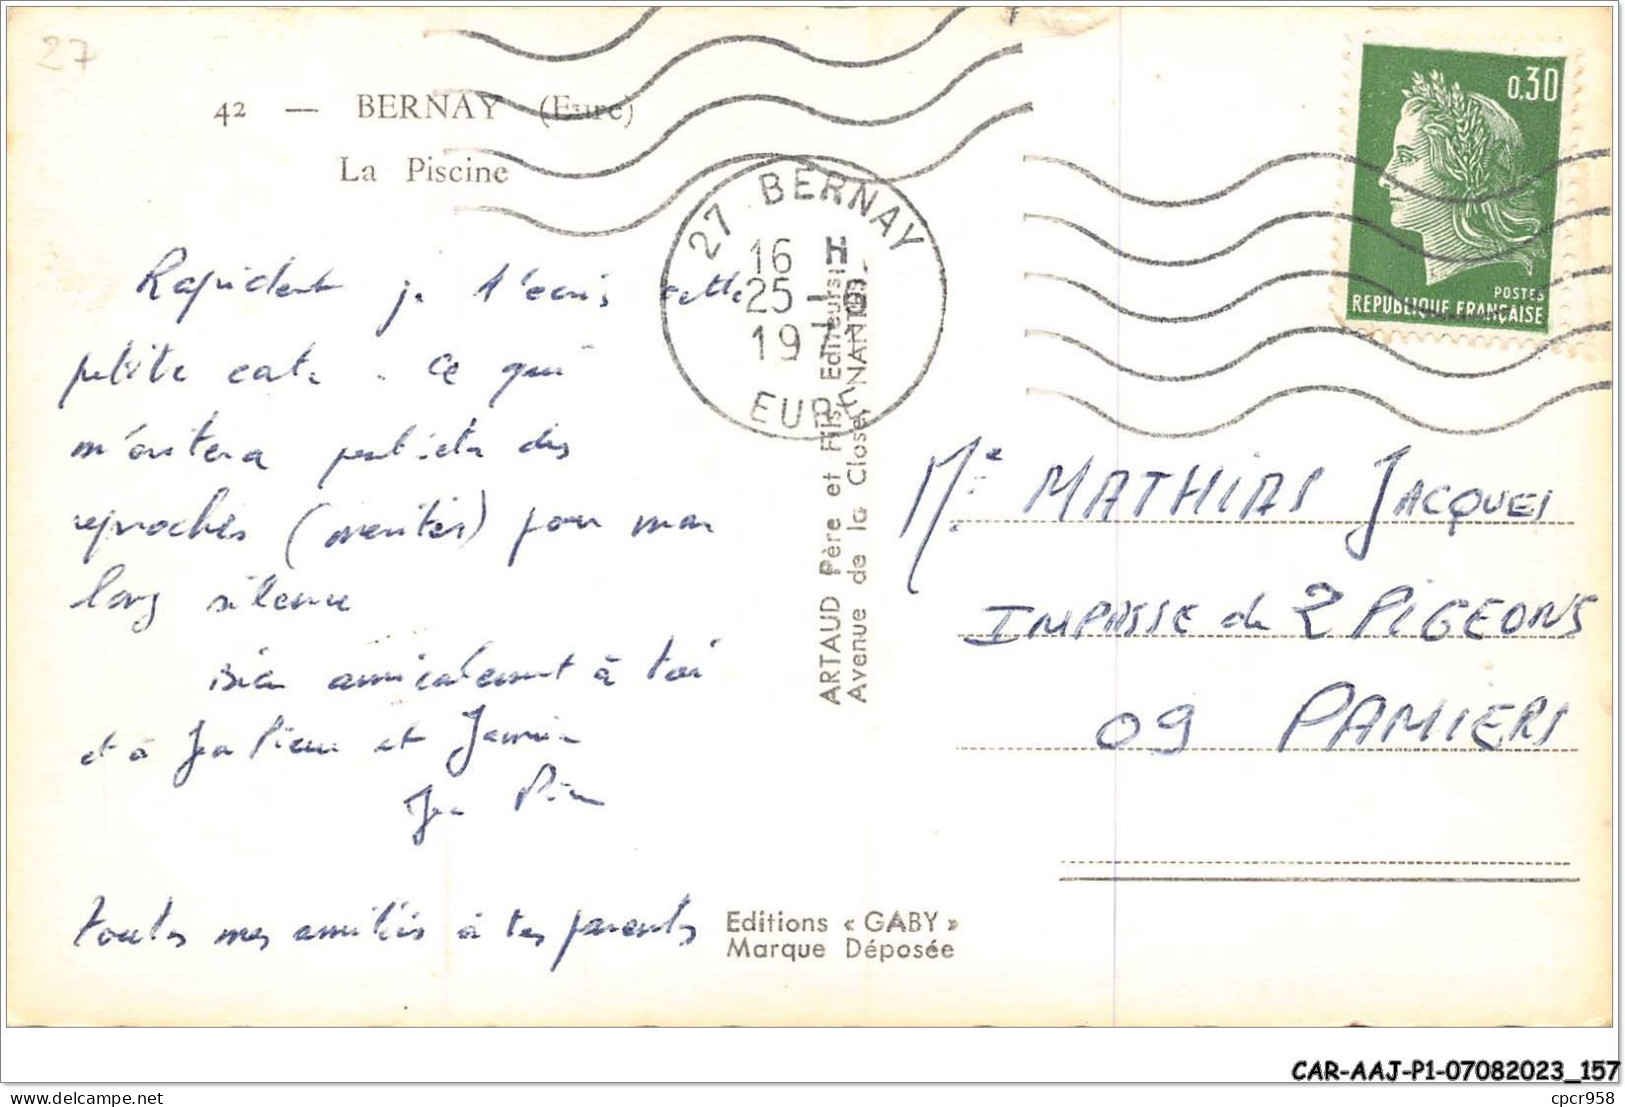 27
42 — BERNAY (Eure)
La Piscine
27 BERNAY
16 H
25 -
19
EURE
0,30
POSTES
REPUBLIQUE FRANÇAISE
Rapident je t'écris cette
petite carte. Ce qui
m'évitera peut-être des
reproches (mérités) pour mon
long silence
Bien amicalement à toi
et à Jean Pierre et Janine
Jean Pierre
toutes mes amitiés à tes parents
ARTAUD Père et Fils, Editeurs
Avenue de la Close, NANTES
Editions « GABY »
Marque Déposée
Mr MATHIAS JACQUES
IMPASSE des 2 PIGEONS
09 PAMIERS
CAR-AAJ-P1-07082023_157
delcampe.net
cpcr958